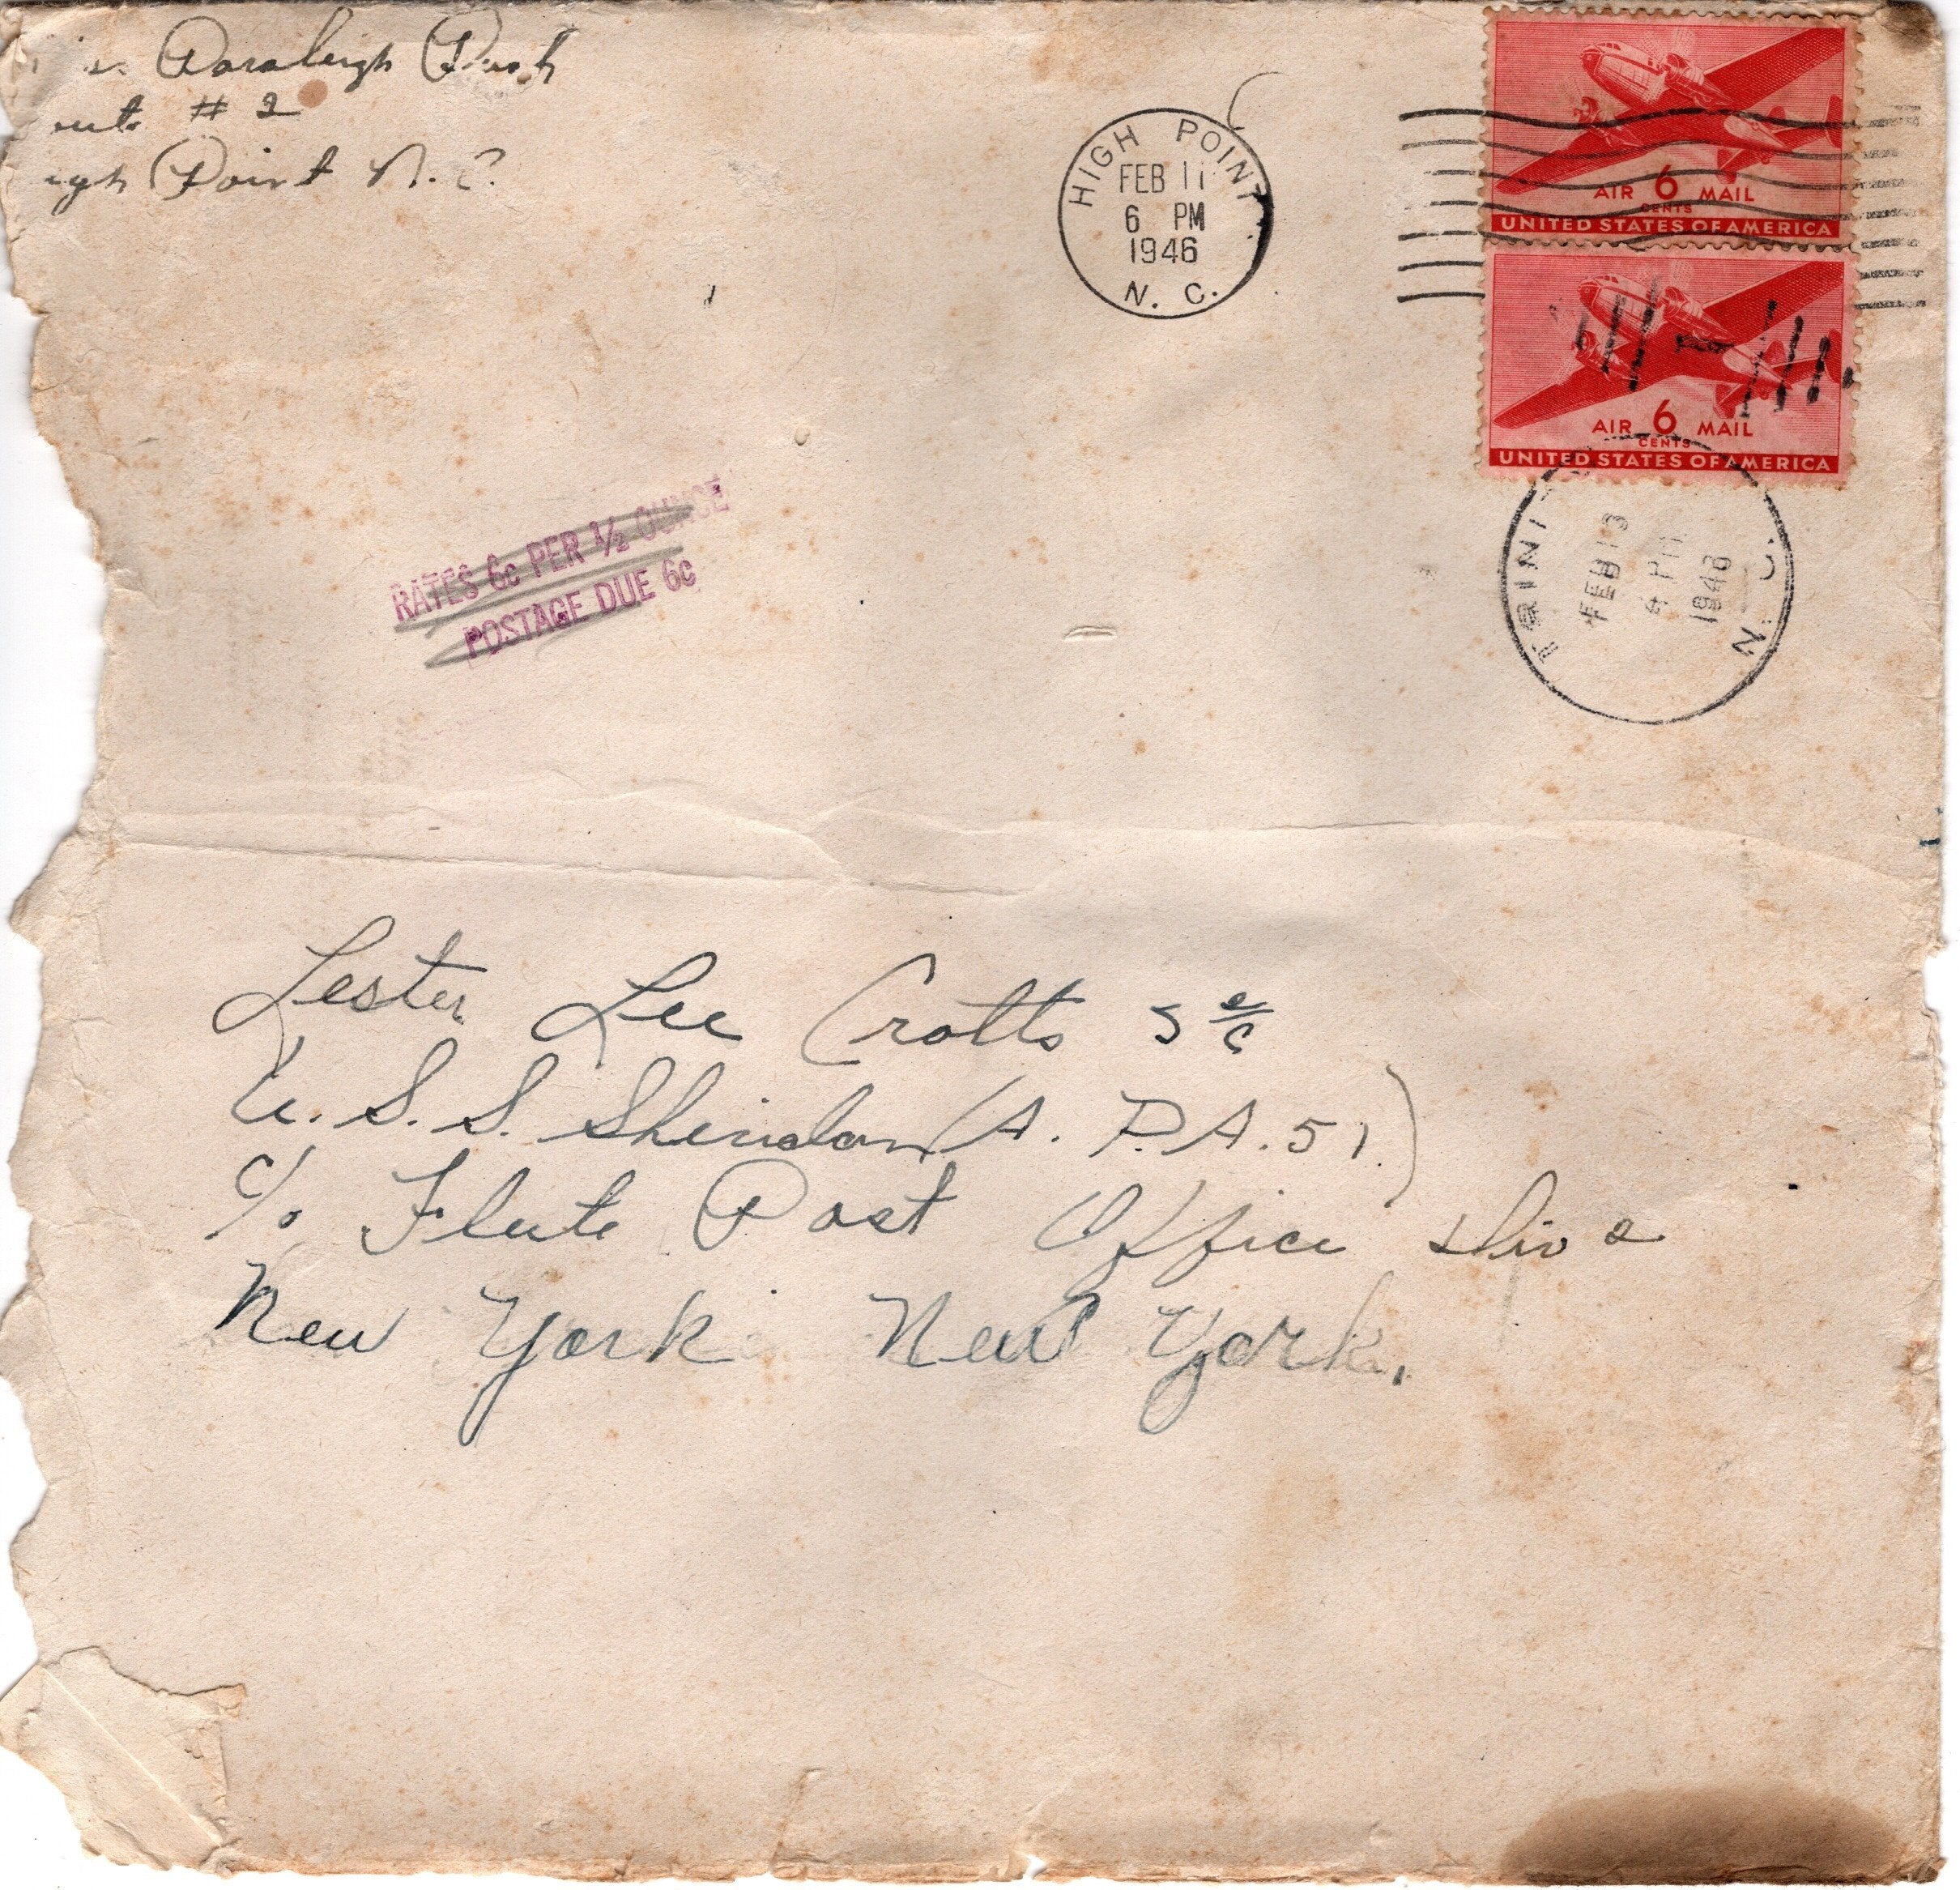 Doraleigh Pugh
# 2
Point N. C.
HIGH POINT
FEB 11
6 PM
1946
N. C.
AIR 6 MAIL
CENTS
UNITED STATES OF AMERICA
AIR 6 MAIL
CENTS
UNITED STATES OF AMERICA
RATES 6c PER ½ OUNCE
POSTAGE DUE 6c
TRINI
FEB 13
4 PM
1946
N. C.
Lester Lee Crotts S 2/c
U. S. S. Sheridan (A. P. A. 51.)
c/o Fleet Post Office Div 2
New York New York.